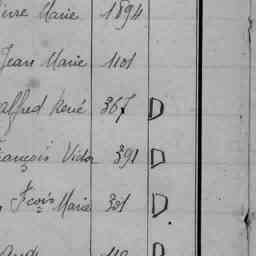 Marie 1894
Jean Marie 1101
Alfred René 367 D
François Victor 391 D
Fcois Marie 301 D
D